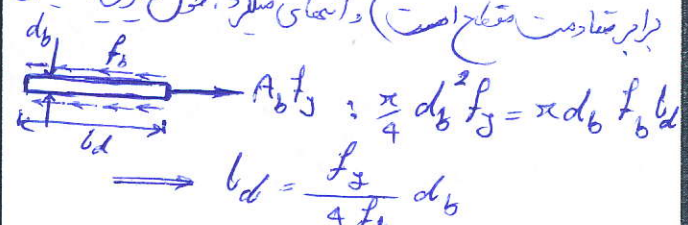 برابر مقاومت مقطع است) و انتهای میلگرد، طول
d_b
f_b
A_b f_y : π/4 d_b² f_y = π d_b f_b l_d
l_d
⟹ l_d = f_y / 4 f_b d_b